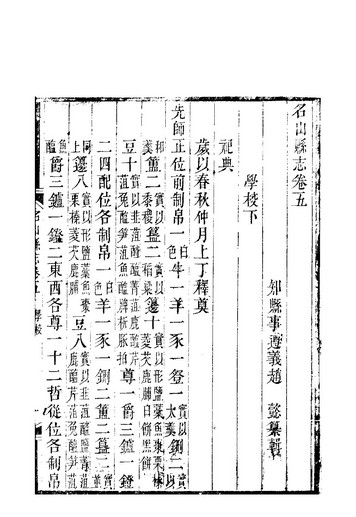 名山縣志卷五
知縣事遵義趙懿纂輯
學校下
祀典
歲以春秋仲月上丁釋奠
先師正位前制帛一白色牛一羊一豕一登一實以太羹鉶二實以和羹簠二實以黍稷簋二實以稻粱籩十實以形鹽藁魚棗栗榛菱芡鹿脯白餅黑餅
豆十實以韭菹醓醢菁菹鹿醢芹菹兔醢筍菹魚醢脾析豚拍尊一爵三鑪一鐙
二四配位各制帛一白色羊一豕一鉶二簠二簋二實同
上籩八實以形鹽藁魚棗栗榛菱芡鹿脯豆八實以韭菹醓醢菁菹鹿醢芹菹兔醢筍菹魚醢
爵三鑪一鐙二東西各尊一十二哲從位各制帛
名山縣志卷五 學校